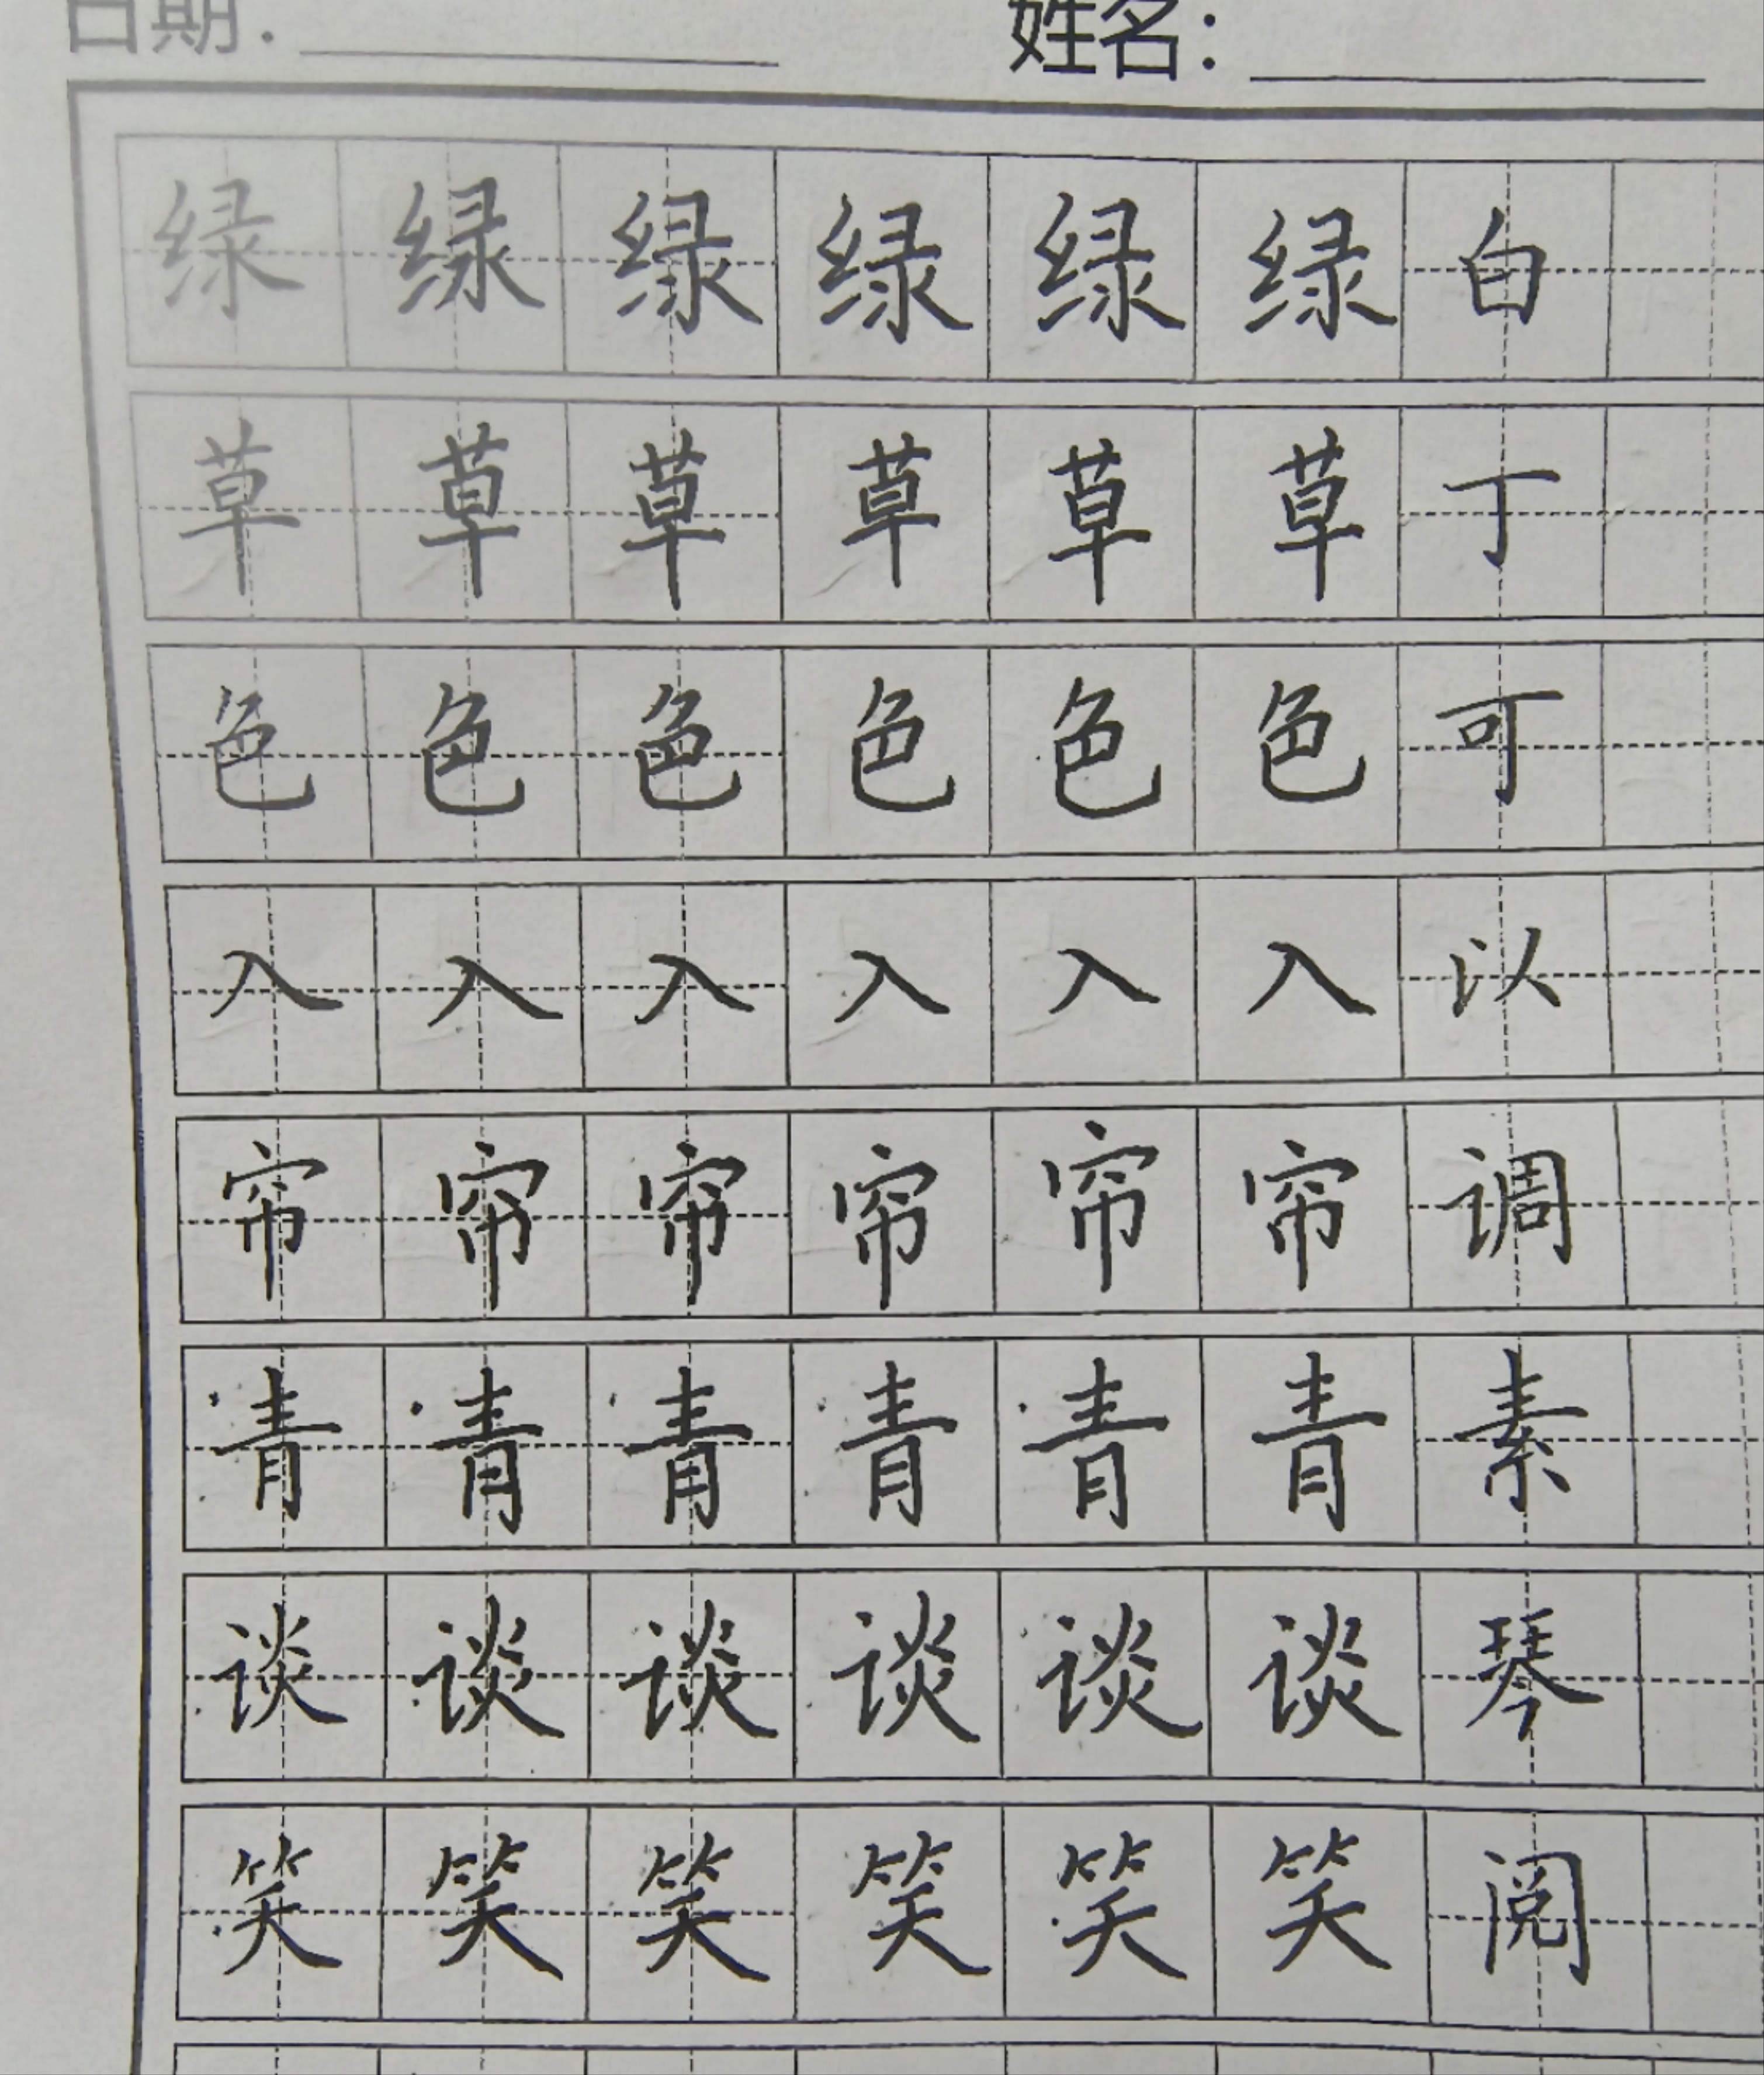 日期： 姓名：
绿绿绿绿绿绿白
草草草草草草丁
色色色色色色可
入入入入入入以
帘帘帘帘帘帘调
青青青青青青素
谈谈谈谈谈谈琴
笑笑笑笑笑笑阅